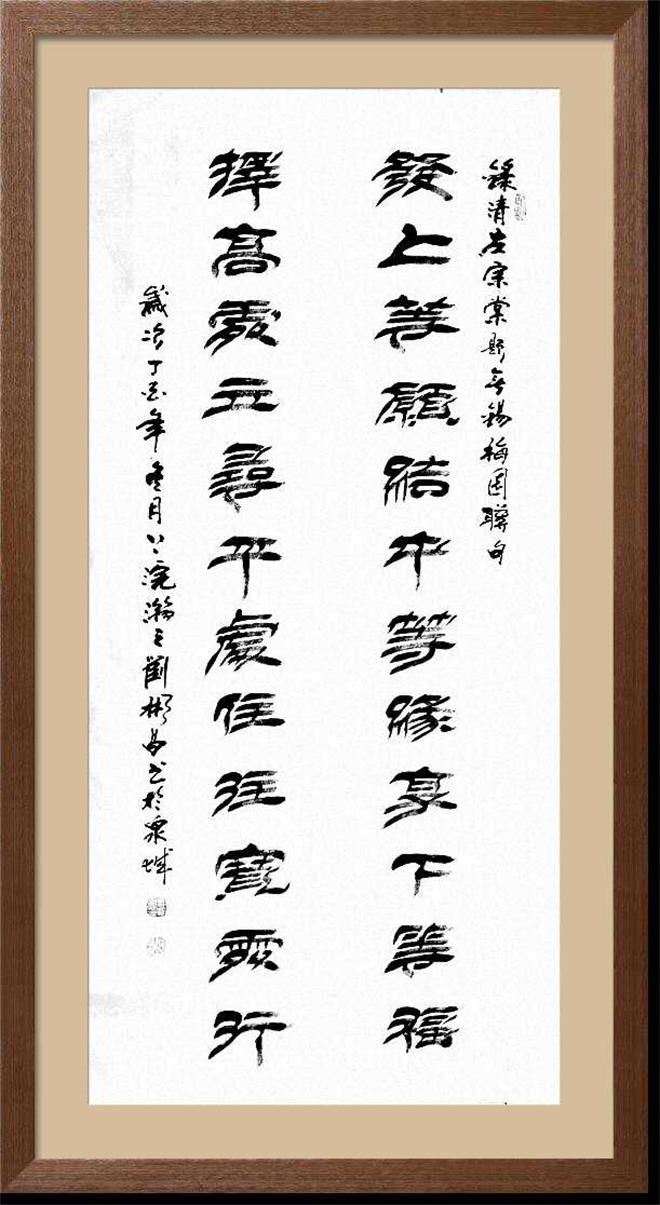 錄清左宗棠題無錫梅園聯句
發上等願結中等緣享下等福
擇高處立尋平處住往寬處行
歲次丁酉年冬月上浣瀚之劉彬昌書於泉城